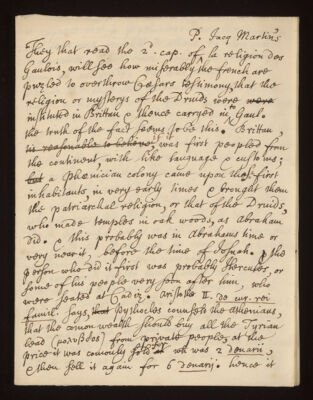 P. Jacq Martin's
They that read the 2d. cap. of la religion des
Gaulois, will see how miserably ye french are
puzled to overthrow Cæsars testimony, that the
religion or mysterys of the Druids were
instituted in Brittain & thence carryed into Gaul.
the truth of the fact seems to be this. Brittan,
tis reasonable to believe, was first peopled from
the continent, with like language & customs;
but a Phœnician colony came upon the first
inhabitants in very early times & brought them
the patriarchal religion, or that of the Druids,
who made temples in oak woods, as Abraham
did. & this probably was in Abrahams time or
very near it, before the time of & the
person who did it first was probably Hercules, or
some of his people very soon after him, who
were seated at Cadiz. Aristotle II. de cur. rei
famil. says, that Pythocles counsel'd the Athenians,
that the common wealth should buy all the Tyrian
lead (μολυβδος) from private people, at the
price it was commonly sold at wh was 2 denarii,
& then sell it again for 6 denarij. hence it